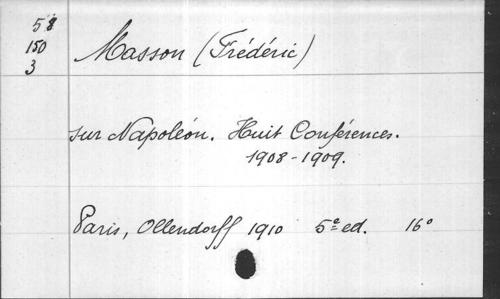 58
150
3
Masson (Frédéric)
sur Napoléon. Huit Conférences.
1908-1909.
Paris, Ollendorff 1910 5e ed. 16°